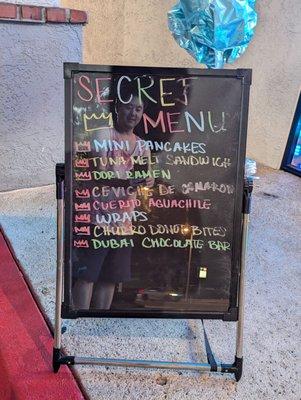 SECRET
MENU
MINI PANCAKES
TUNA MELT SANDWICH
DORI RAMEN
CEVICHE DE CAMARON
CUERITO AGUACHILE
WRAPS
CHURRO DONUT BITES
DUBAI CHOCOLATE BAR